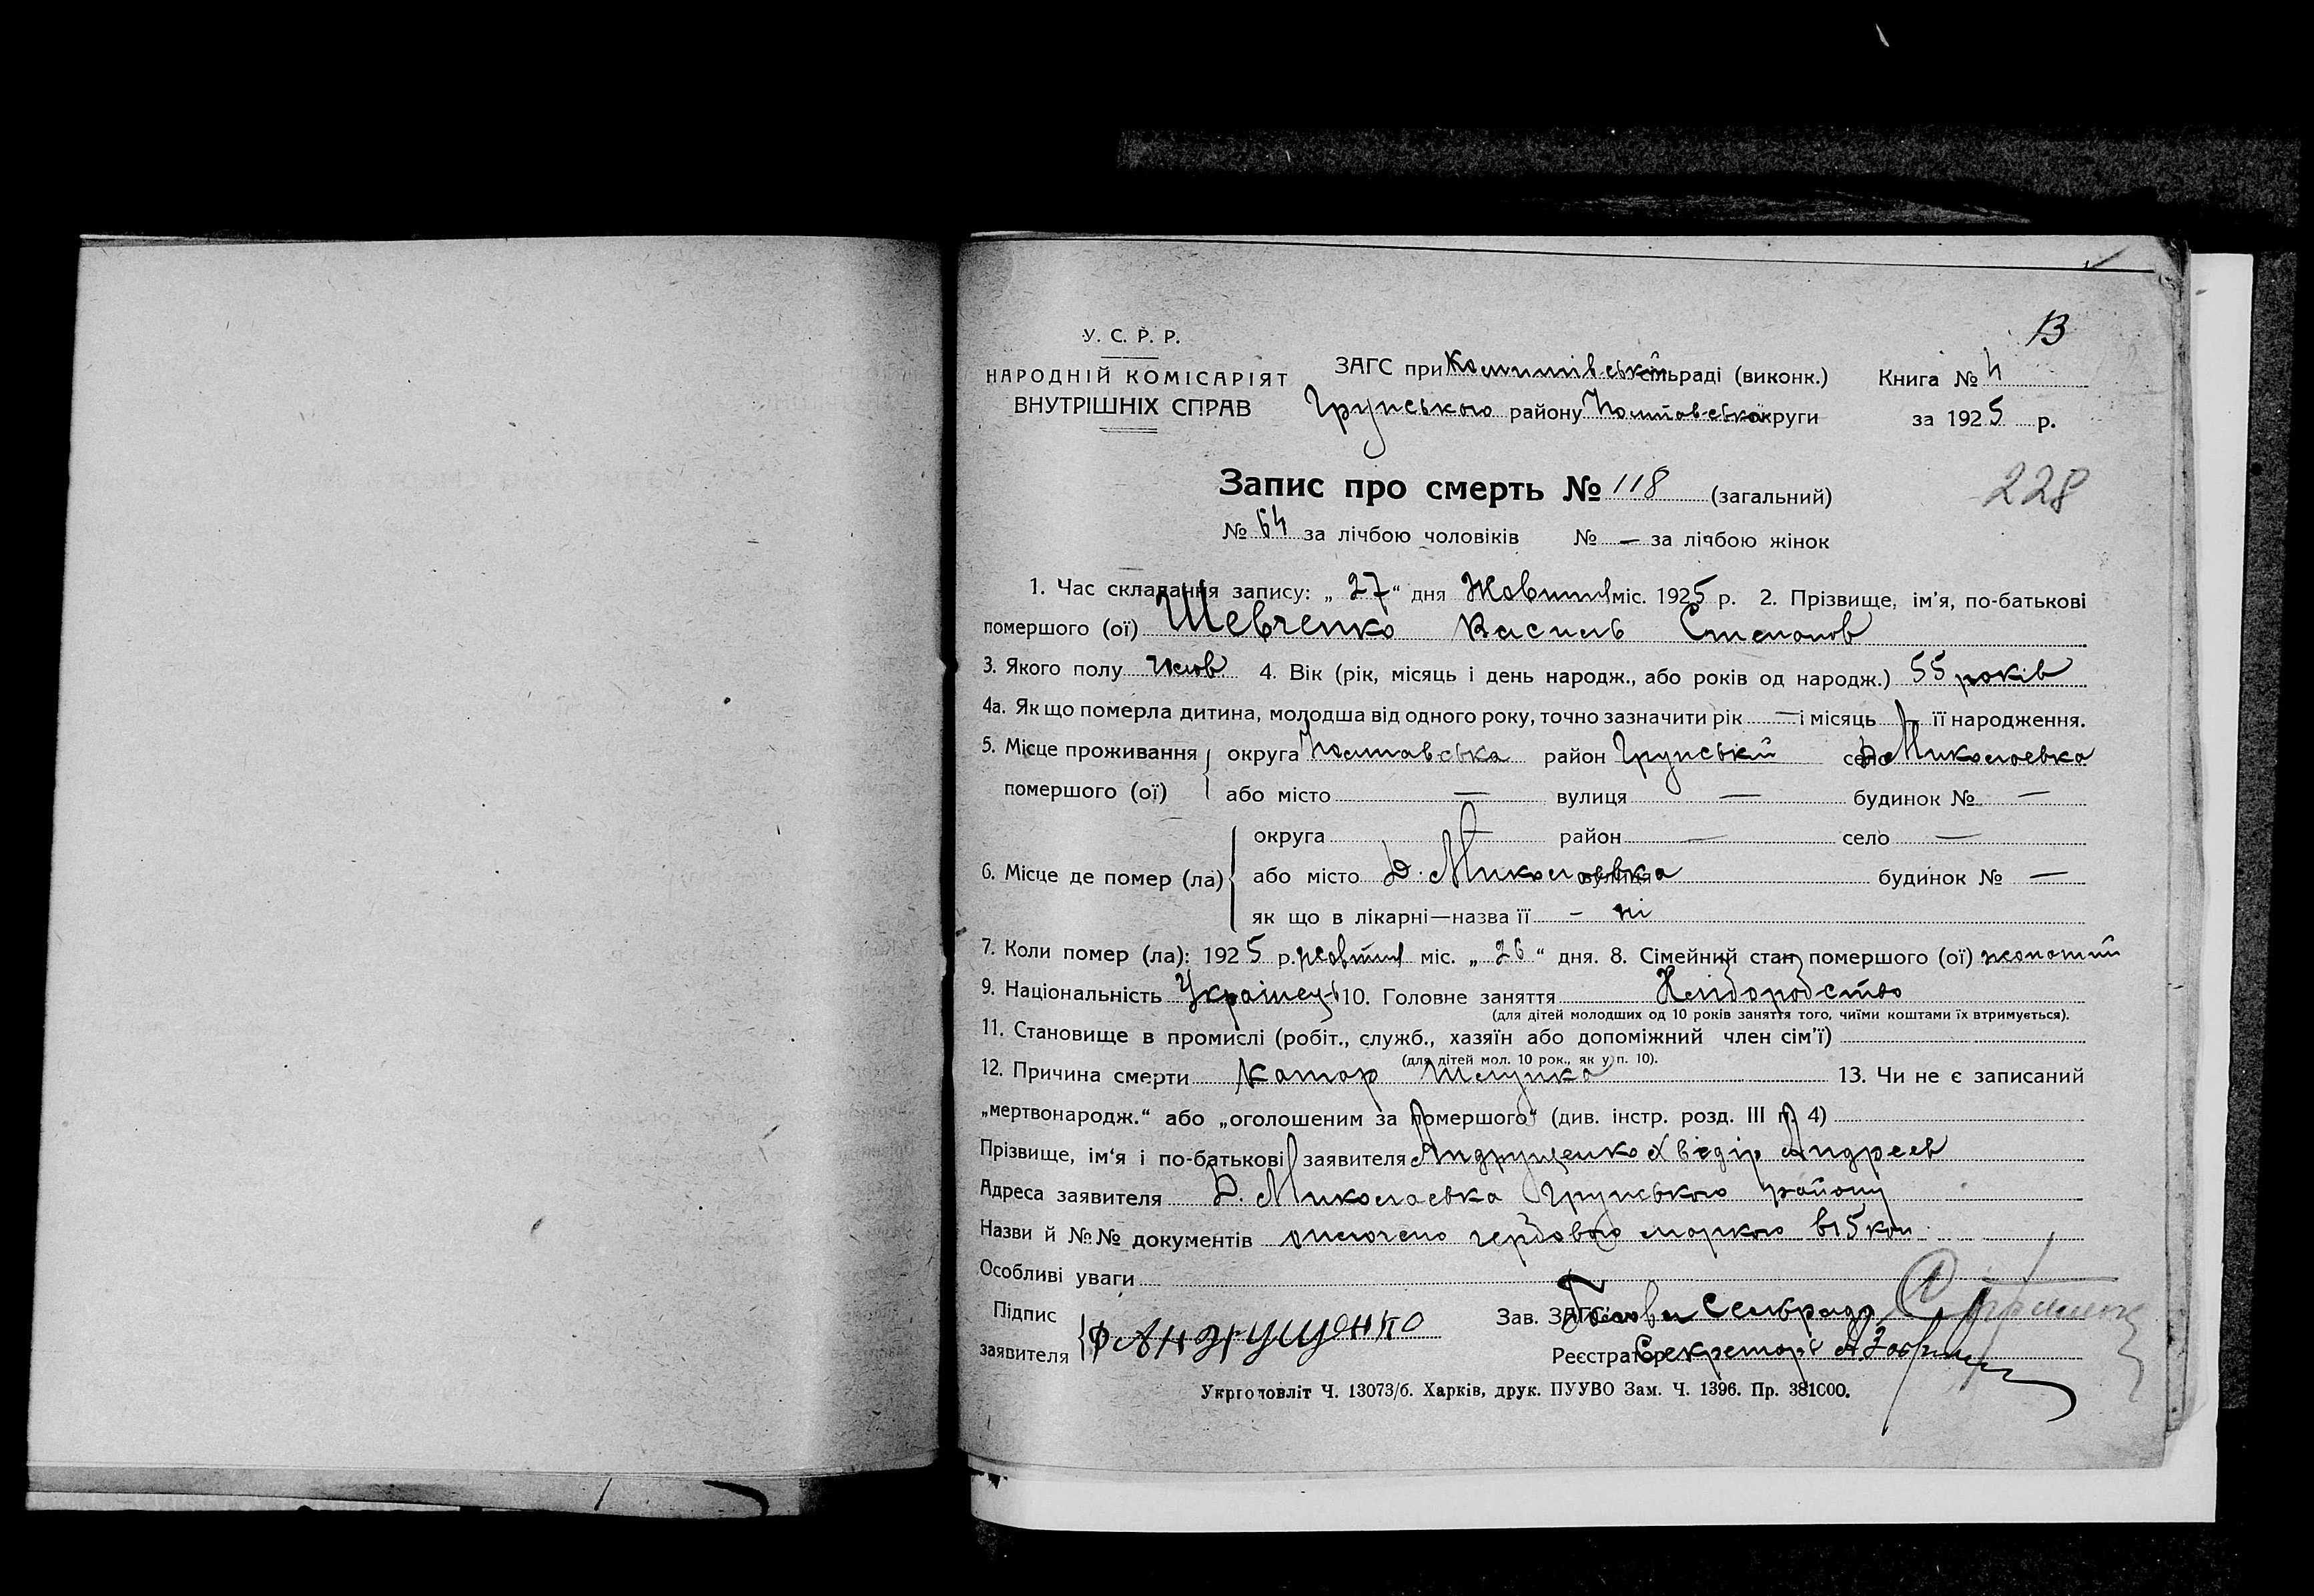 13
У. С. Р. Р.
НАРОДНІЙ КОМІСАРІЯТ
ВНУТРІШНІХ СПРАВ
ЗАГС при сільраді (виконк.)
Грунського району Полтавської округи
Книга № 4
за 1925 р.
Запис про смерть № 118 (загальний)
228
№ 64 за лічбою чоловіків № — за лічбою жінок
1. Час складання запису: „ 27 “ дня Жовтня міс. 1925 р. 2. Прізвище, ім’я, по-батькові
помершого (ої) Шевченко Василь Степанов
3. Якого полу чолов 4. Вік (рік, місяць і день народж., або років од народж.) 55 років
4а. Як що померла дитина, молодша від одного року, точно зазначити рік — і місяць — її народження.
5. Місце проживання помершого (ої) округа Полтавська район Грунській село Д. Миколаевка
або місто — вулиця — будинок № —
6. Місце де помер (ла) округа — район — село —
або місто Д. Миколаевка вулиця будинок № —
як що в лікарні—назва її — ні
7. Коли помер (ла): 1925 р. жовтня міс. „ 26 “ дня. 8. Сімейний стан помершого (ої) жонатий
9. Національність Українець 10. Головне заняття Хлібородство
(для дітей молодших од 10 років заняття того, чиїми коштами їх втримується).
11. Становище в промислі (робіт., служб., хазяїн або допоміжний член сім’ї)
(для дітей мол. 10 рок., як у п. 10).
12. Причина смерти Катар Желудка 13. Чи не є записаний
„мертвонародж.“ або „оголошеним за помершого“ (див. інстр. розд. III п. 4)
Прізвище, ім‘я і по-батькові заявителя Андрущенко Хведір Андреев
Адреса заявителя Д. Миколаевка Грунського району
Назви й №№ документів оплочено гербовою маркою в 15 коп.
Особливі уваги
Підпис заявителя Ф Андрущенко
Зав. ЗАГС'ом Голова Сельради
Реєстратор Секретарь
Укрголовліт Ч. 13073/б. Харків, друк. ПУУВО Зам. Ч. 1396. Пр. 381000.